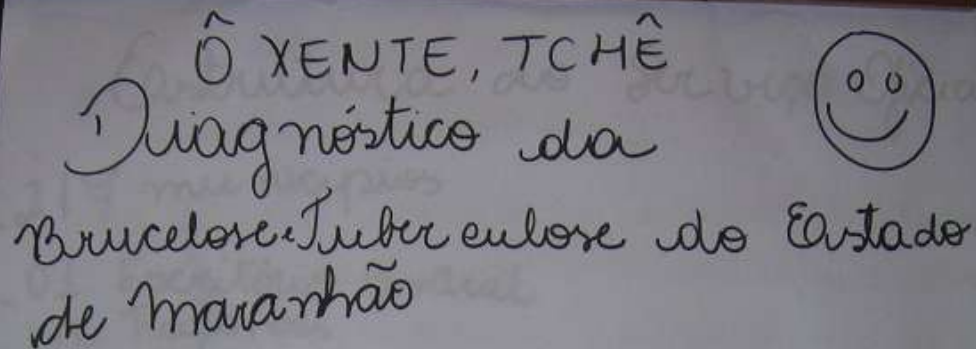 Ô XENTE, TCHÊ
Diagnóstico da
Brucelose.Tuberculose do Estado
de Maranhão